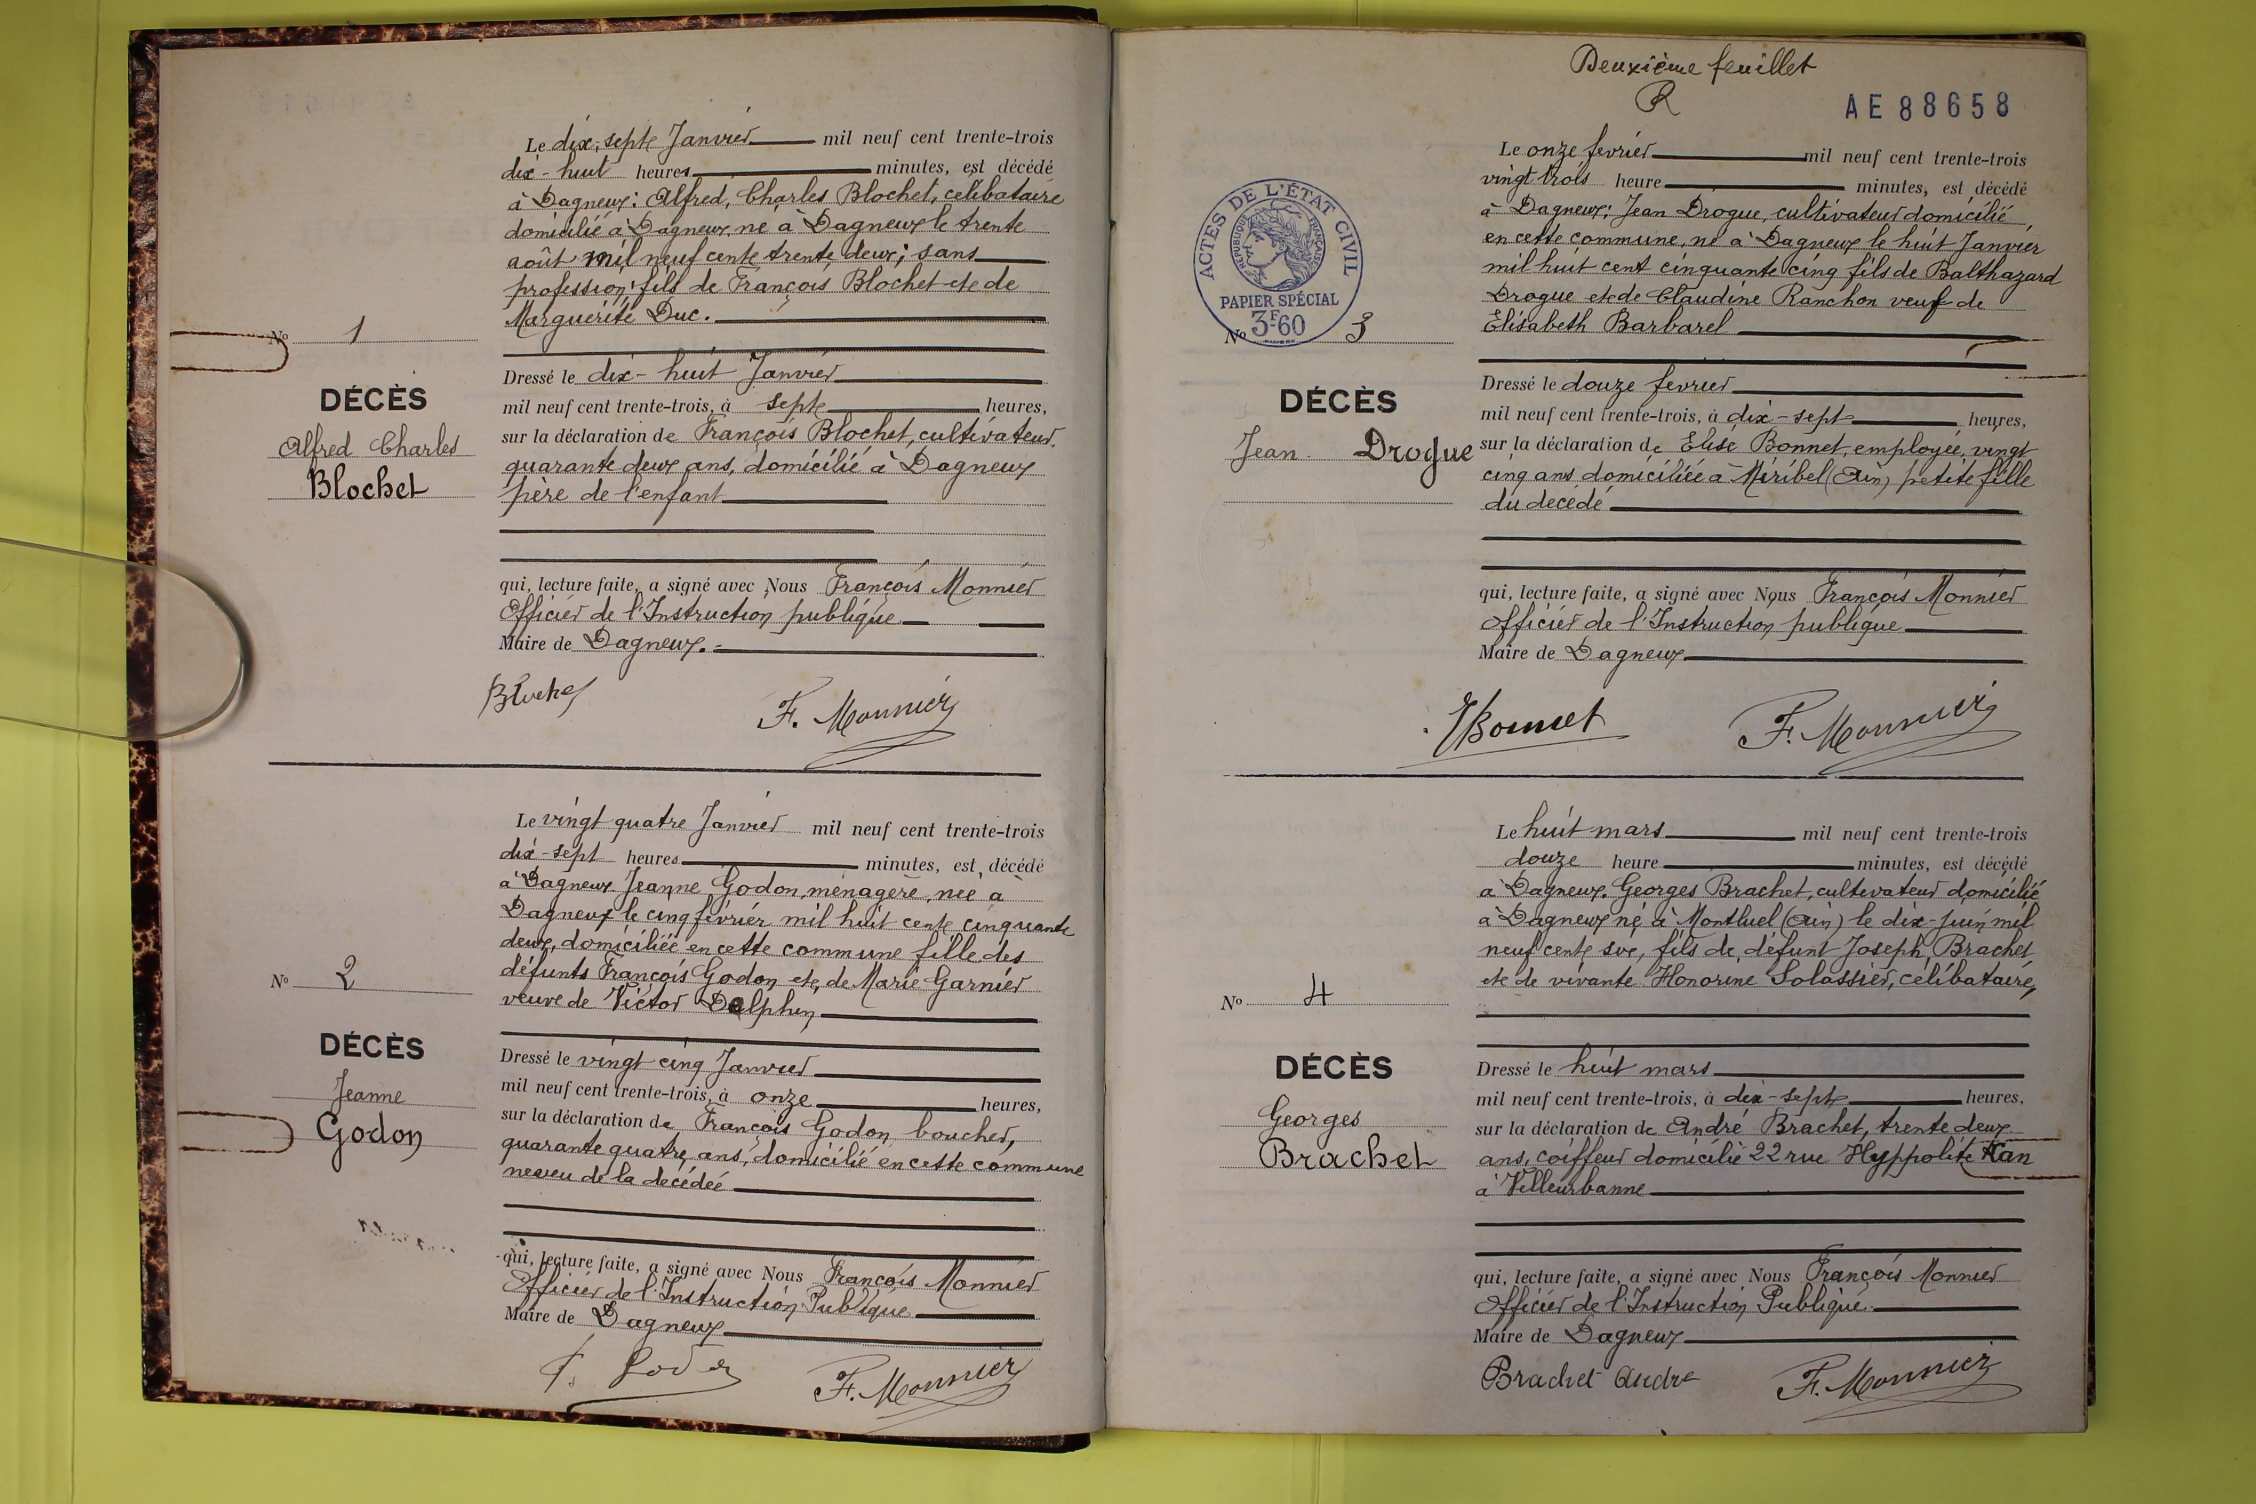 Le dix-septe Janvier mil neuf cent trente-trois
dix-huit heures minutes, est décédé
à Dagneux: Alfred, Charles Blochet, célibataire
domicilié à Dagneux, né à Dagneux le trente
août mil neuf cente trente deux; sans
profession; fils de François Blochet ete de
Marguerite Duc.
No 1
DÉCÈS
Alfred Charles
Blochet
Dressé le dix-huit Janvier
mil neuf cent trente-trois, à septe heures,
sur la déclaration de François Blochet, cultivateur,
quarante deux ans, domicilié à Dagneux
père de l'enfant
qui, lecture faite, a signé avec Nous François Monnier
Officier de l'Instruction publique
Maire de Dagneux.
Blochet F. Monnier
Le vingt quatre Janvier mil neuf cent trente-trois
dix-sept heures minutes, est décédé
à Dagneux Jeanne Godon, ménagère, née à
Dagneux le cinq février mil huit cente cinquante
deux, domiciliée en cette commune fille des
défunts François Godon ete de Marie Garnier
veuve de Victor Delphin
No 2
DÉCÈS
Jeanne
Godon
Dressé le vingt cinq Janvier
mil neuf cent trente-trois, à onze heures,
sur la déclaration de François Godon boucher,
quarante quatre ans, domicilié en cette commune
neveu de la décédée
qui, lecture faite, a signé avec Nous François Monnier
Officier de l'Instruction Publique
Maire de Dagneux
F. Godon F. Monnier
Deuxième feuillet
R
AE 88658
Le onze fevrier mil neuf cent trente-trois
vingt trois heure minutes, est décédé
à Dagneux: Jean Drogue, cultivateur domicilié
en cette commune, né à Dagneux le huit Janvier
mil huit cent cinquante cinq fils de Balthazard
Drogue ete de Claudine Ranchon veuf de
Elisabeth Barbarel
ACTES DE L'ÉTAT CIVIL
RÉPUBLIQUE FRANÇAISE
PAPIER SPÉCIAL
3F60
No 3
DÉCÈS
Jean Drogue
Dressé le douze fevrier
mil neuf cent trente-trois, à dix-sept heures,
sur la déclaration de Elise Bonnet, employée, vingt
cinq ans, domiciliée à Miribel (Ain) petite fille
du décédé
qui, lecture faite, a signé avec Nous François Monnier
Officier de l'Instruction publique
Maire de Dagneux
EBonnet F. Monnier
Le huit mars mil neuf cent trente-trois
douze heure minutes, est décédé
à Dagneux. Georges Brachet, cultivateur domicilié
à Dagneux né à Montluel (Ain) le dix-juin mil
neuf cente six, fils de défunt Joseph Brachet
ete de vivante Honorine Solassier, célibataire,
No 4
DÉCÈS
Georges
Brachet
Dressé le huit mars
mil neuf cent trente-trois, à dix-septe heures,
sur la déclaration de André Brachet, trente deux
ans, coiffeur domicilié 22 rue Hyppolite Kan
à Villeurbanne
qui, lecture faite, a signé avec Nous François Monnier
Officier de l'Instruction Publique
Maire de Dagneux
Brachet André F. Monnier